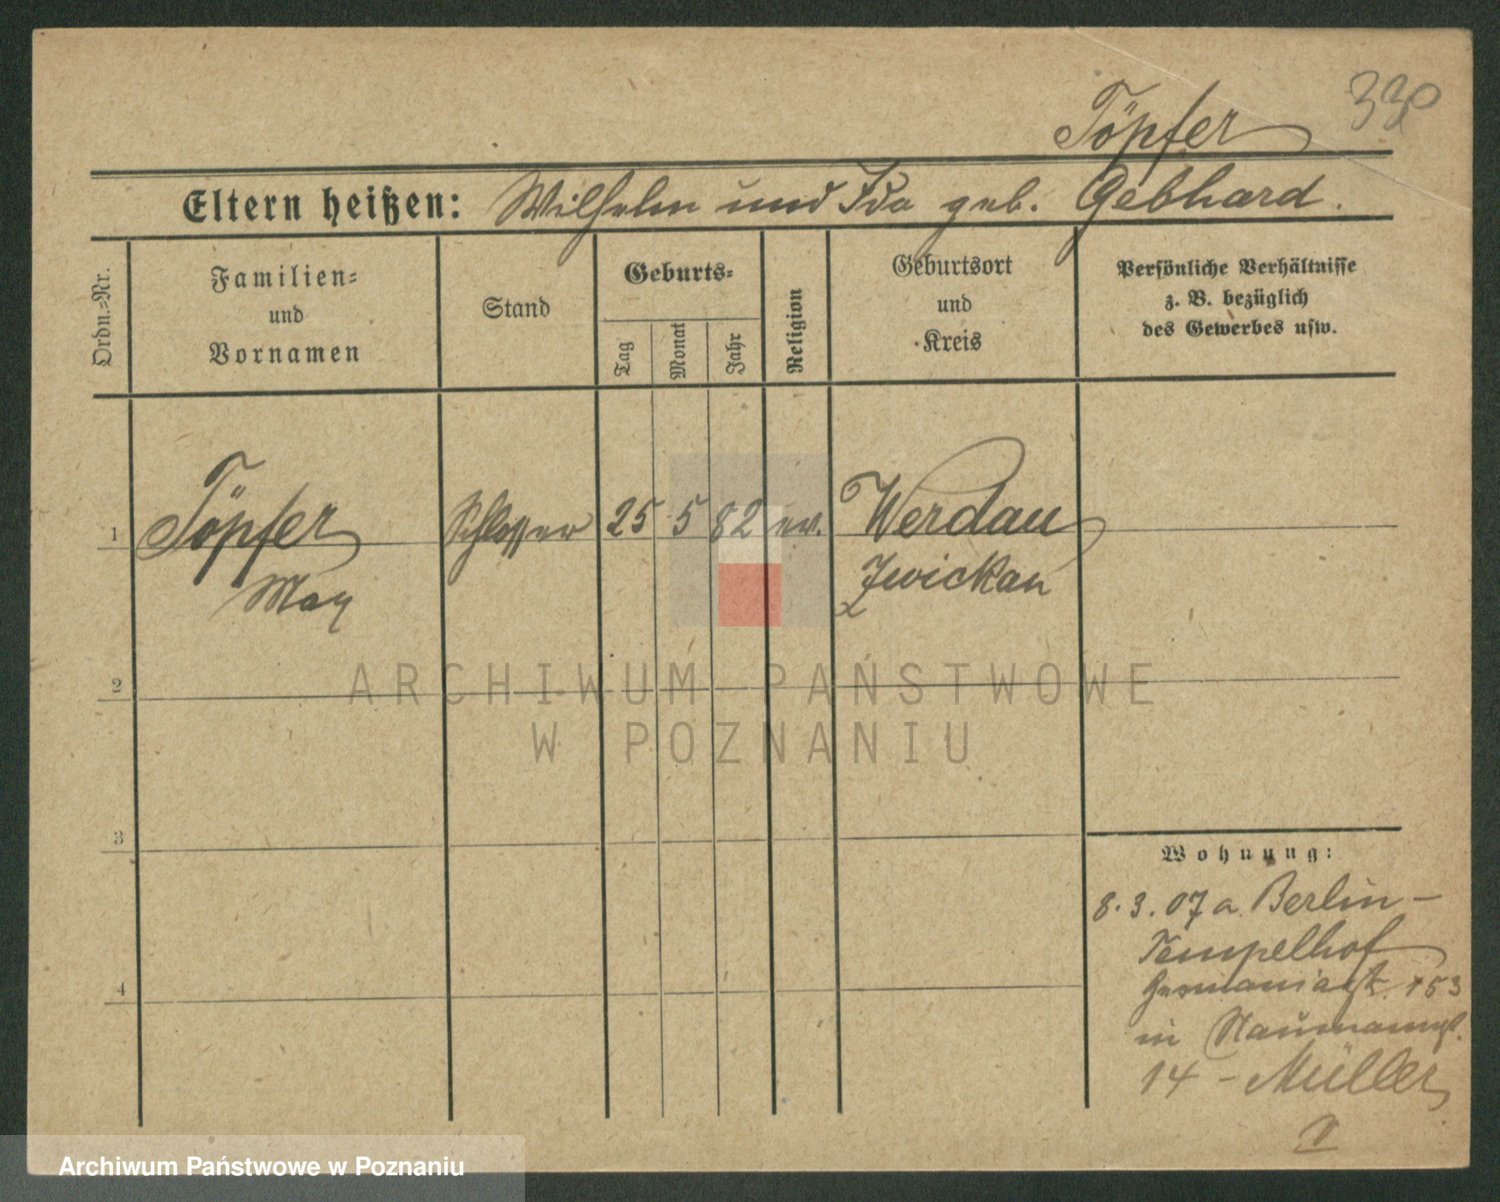 330
Töpfer
Eltern heißen: Wilhelm und Ida geb. Gebhard.
Ordn.-Nr.
Familien-
und
Vornamen
Stand
Geburts-
Tag
Monat
Jahr
Religion
Geburtsort
und
Kreis
Persönliche Verhältnisse
z. B. bezüglich
des Gewerbes usw.
1 Töpfer Schlosser 25 5 82 ev. Werdau
Max Zwickau
2
ARCHIWUM PAŃSTWOWE
W POZNANIU
3
Wohnung:
8.3.07 a. Berlin-
Tempelhof
4
Germaniastr. 153
in Naumannstr.
14 - Müller
Archiwum Państwowe w Poznaniu